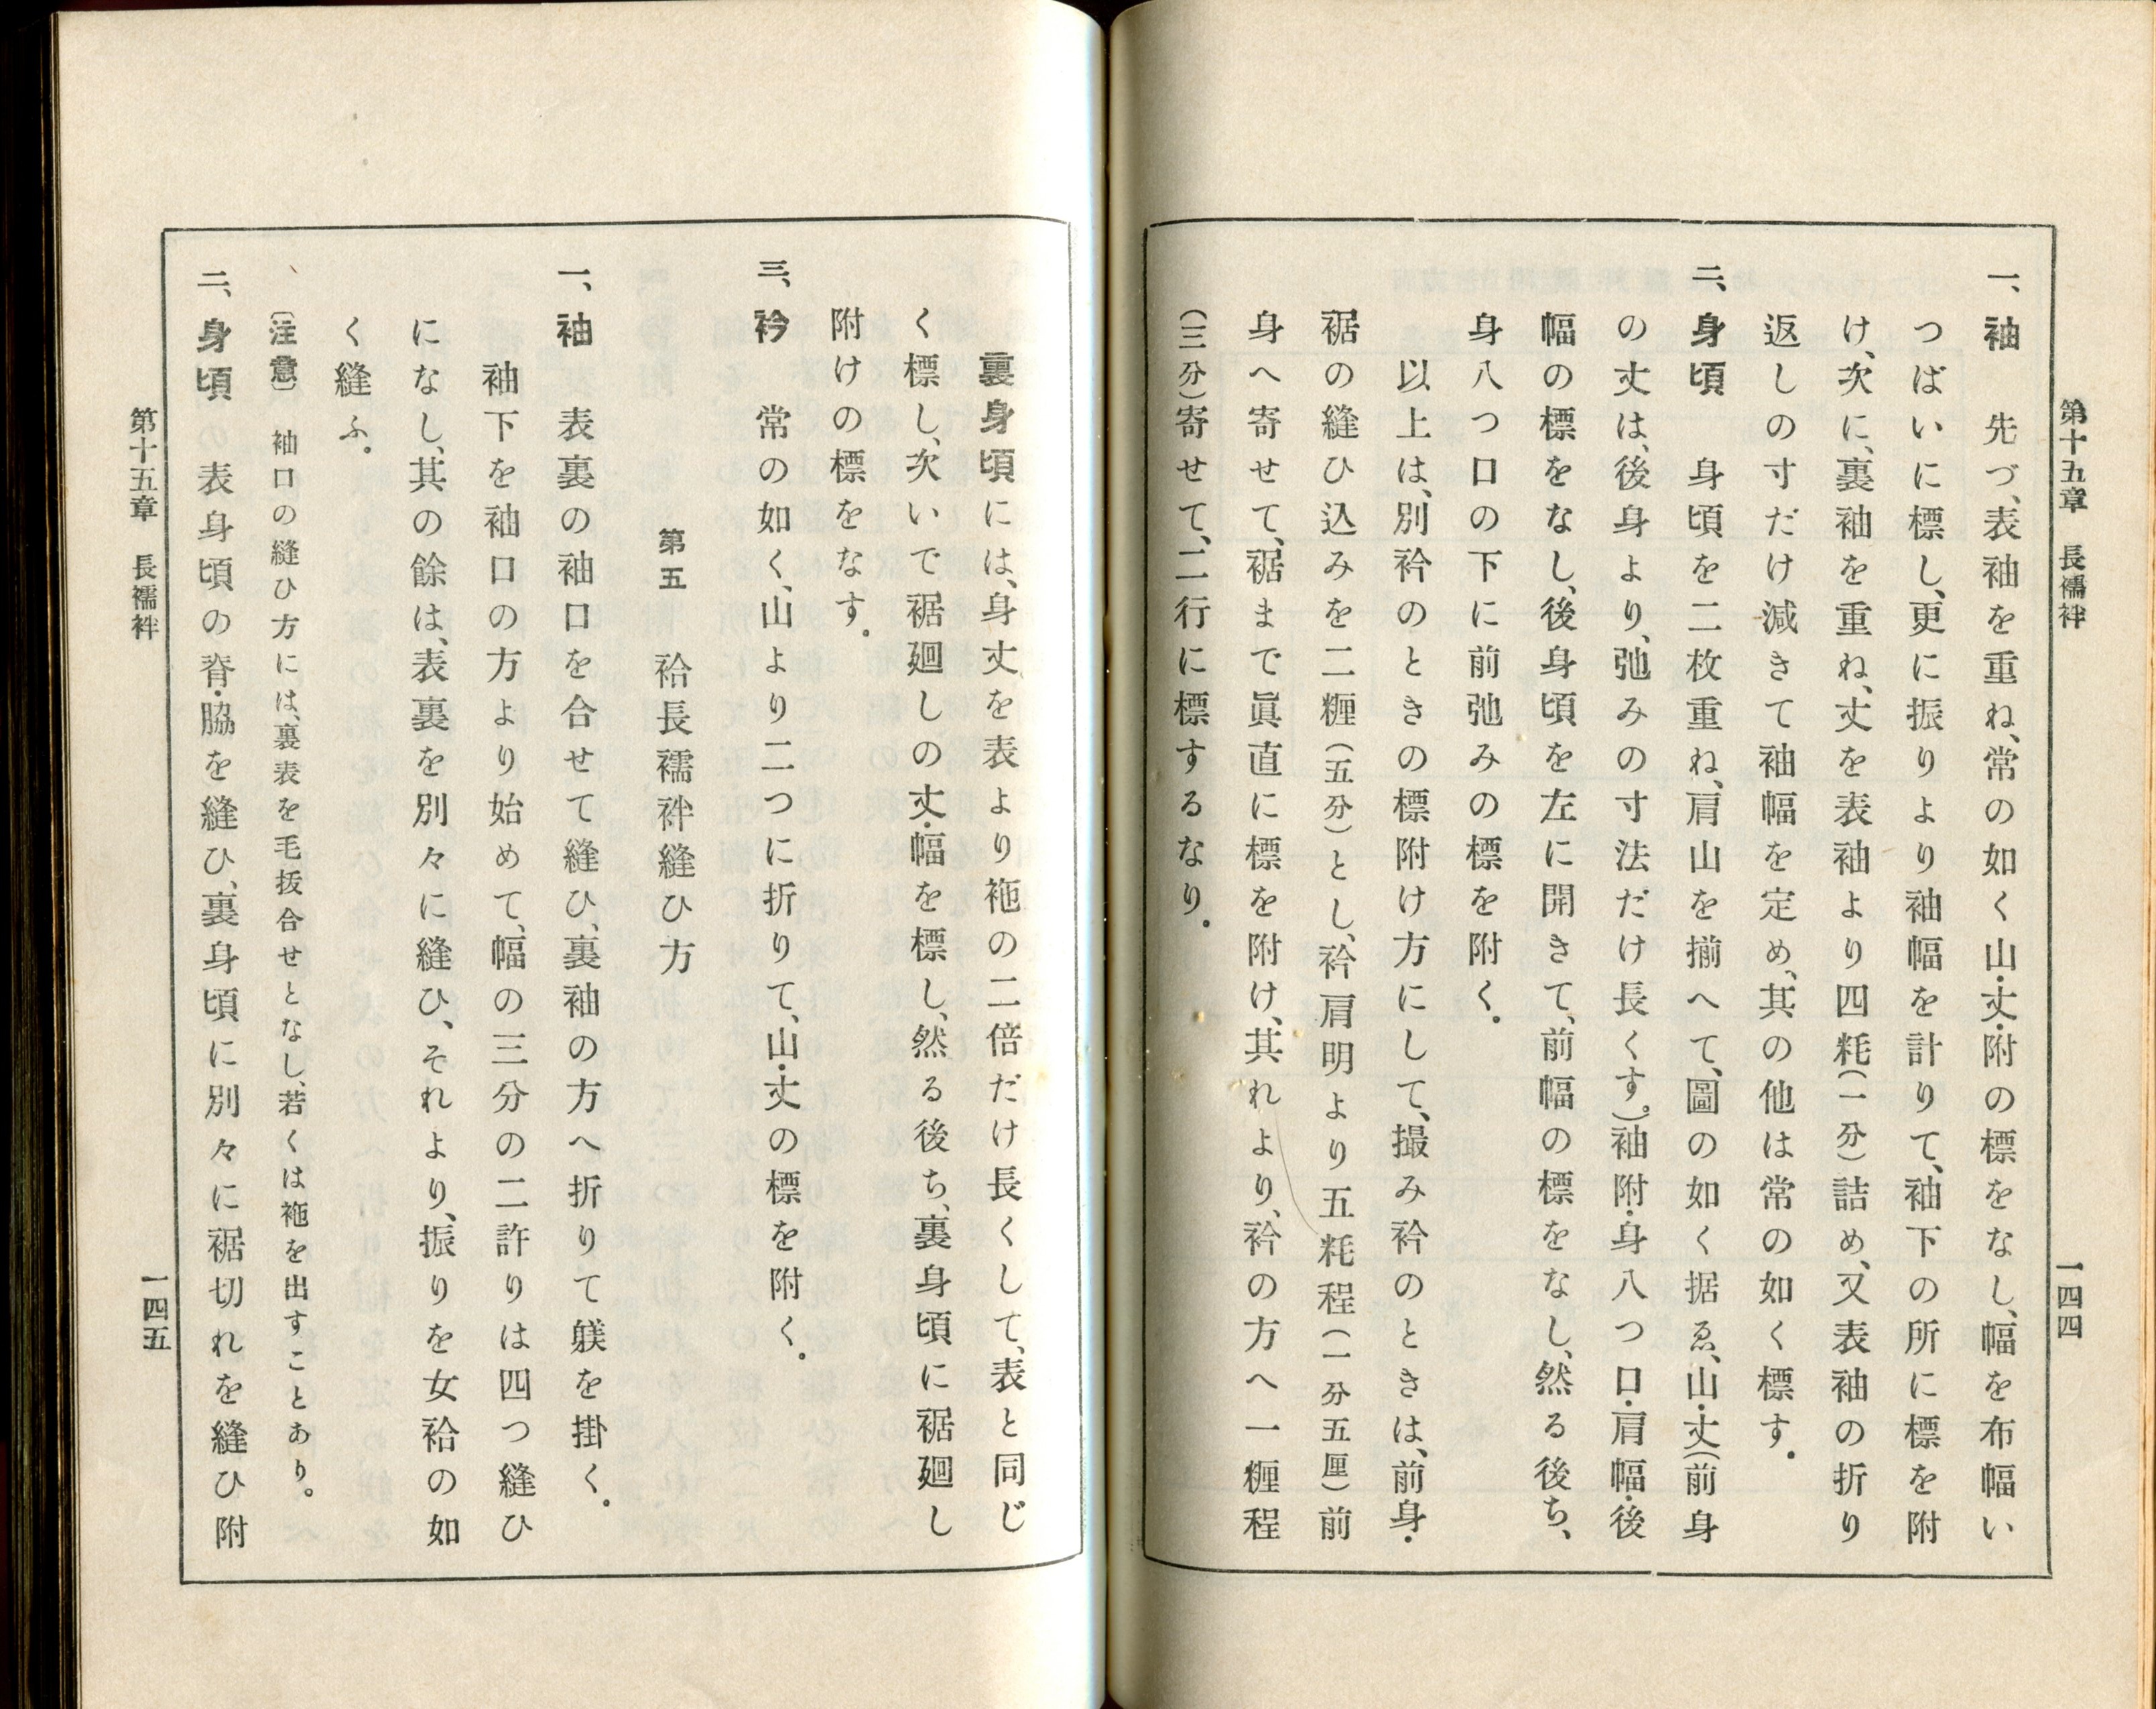 第十五章　長襦袢
一四四
一、袖　先づ、表袖を重ね、常の如く山・丈・附の標をなし、幅を布幅い
つぱいに標し、更に振りより袖幅を計りて、袖下の所に標を附
け、次に、裏袖を重ね、丈を表袖より四粍（一分）詰め、又表袖の折り
返しの寸だけ減きて袖幅を定め、其の他は常の如く標す。
二、身頃　身頃を二枚重ね、肩山を揃へて、圖の如く据ゑ、山・丈（前身
の丈は、後身より、弛みの寸法だけ長くす。）袖附・身八つ口・肩幅・後
幅の標をなし、後身頃を左に開きて、前幅の標をなし、然る後ち、
身八つ口の下に前弛みの標を附く。
以上は、別衿のときの標附け方にして、撮み衿のときは、前身・
裾の縫ひ込みを二糎（五分）とし、衿肩明より五粍程（一分五厘）前
身へ寄せて、裾まで眞直に標を附け、其れより、衿の方へ一糎程
（三分）寄せて、二行に標するなり。
裏身頃には、身丈を表より袘の二倍だけ長くして、表と同じ
く標し、次いで裾廻しの丈・幅を標し、然る後ち、裏身頃に裾廻し
附けの標をなす。
三、衿　常の如く、山より二つに折りて、山・丈の標を附く。
第五　袷長襦袢縫ひ方
一、袖　表裏の袖口を合せて縫ひ、裏袖の方へ折りて躾を掛く。
袖下を袖口の方より始めて、幅の三分の二許りは四つ縫ひ
になし、其の餘は、表裏を別々に縫ひ、それより、振りを女袷の如
く縫ふ。
〔注意〕　袖口の縫ひ方には、裏表を毛抜合せとなし、若くは袘を出すことあり。
二、身頃　表身頃の脊・脇を縫ひ、裏身頃に別々に裾切れを縫ひ附
第十五章　長襦袢
一四五